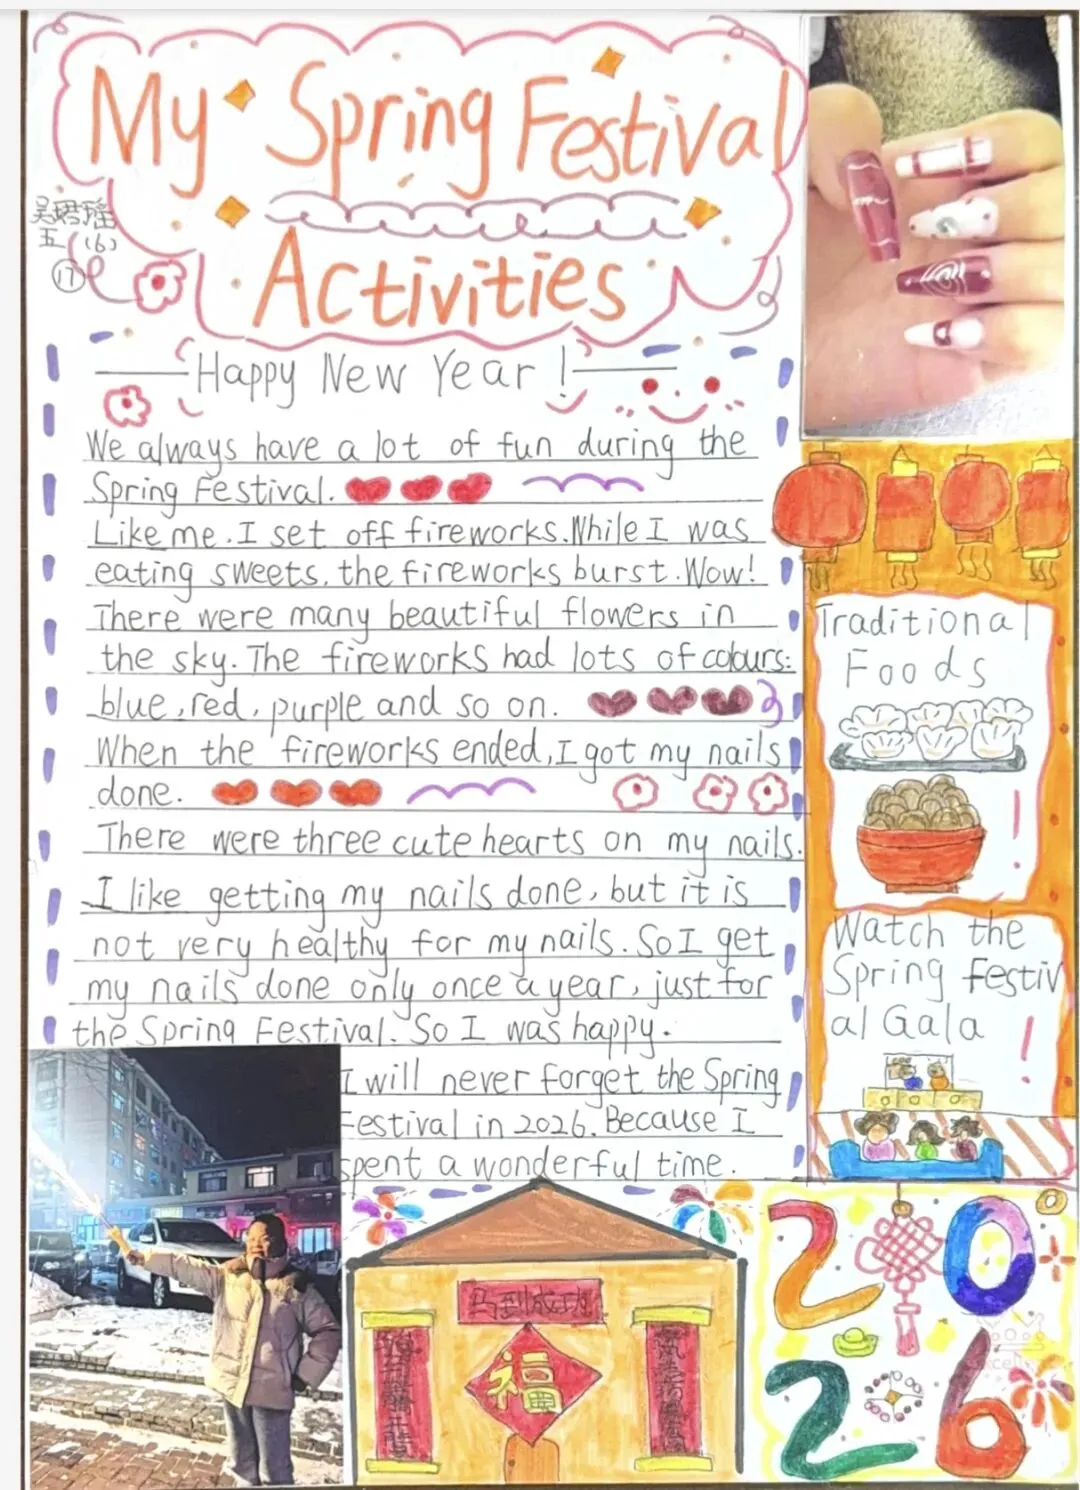 My Spring Festival
Activities
吴珺瑶
五(6)
17
Happy New Year!
We always have a lot of fun during the
Spring Festival.
Like me. I set off fireworks. While I was
eating sweets, the fireworks burst. Wow!
There were many beautiful flowers in
the sky. The fireworks had lots of colours:
blue, red, purple and so on.
When the fireworks ended, I got my nails
done.
There were three cute hearts on my nails.
I like getting my nails done, but it is
not very healthy for my nails. So I get
my nails done only once a year, just for
the Spring Festival. So I was happy.
I will never forget the Spring
Festival in 2026. Because I
spent a wonderful time.
Traditional
Foods
!
Watch the
Spring Festiv
al Gala
!
马到成功
福
20
26